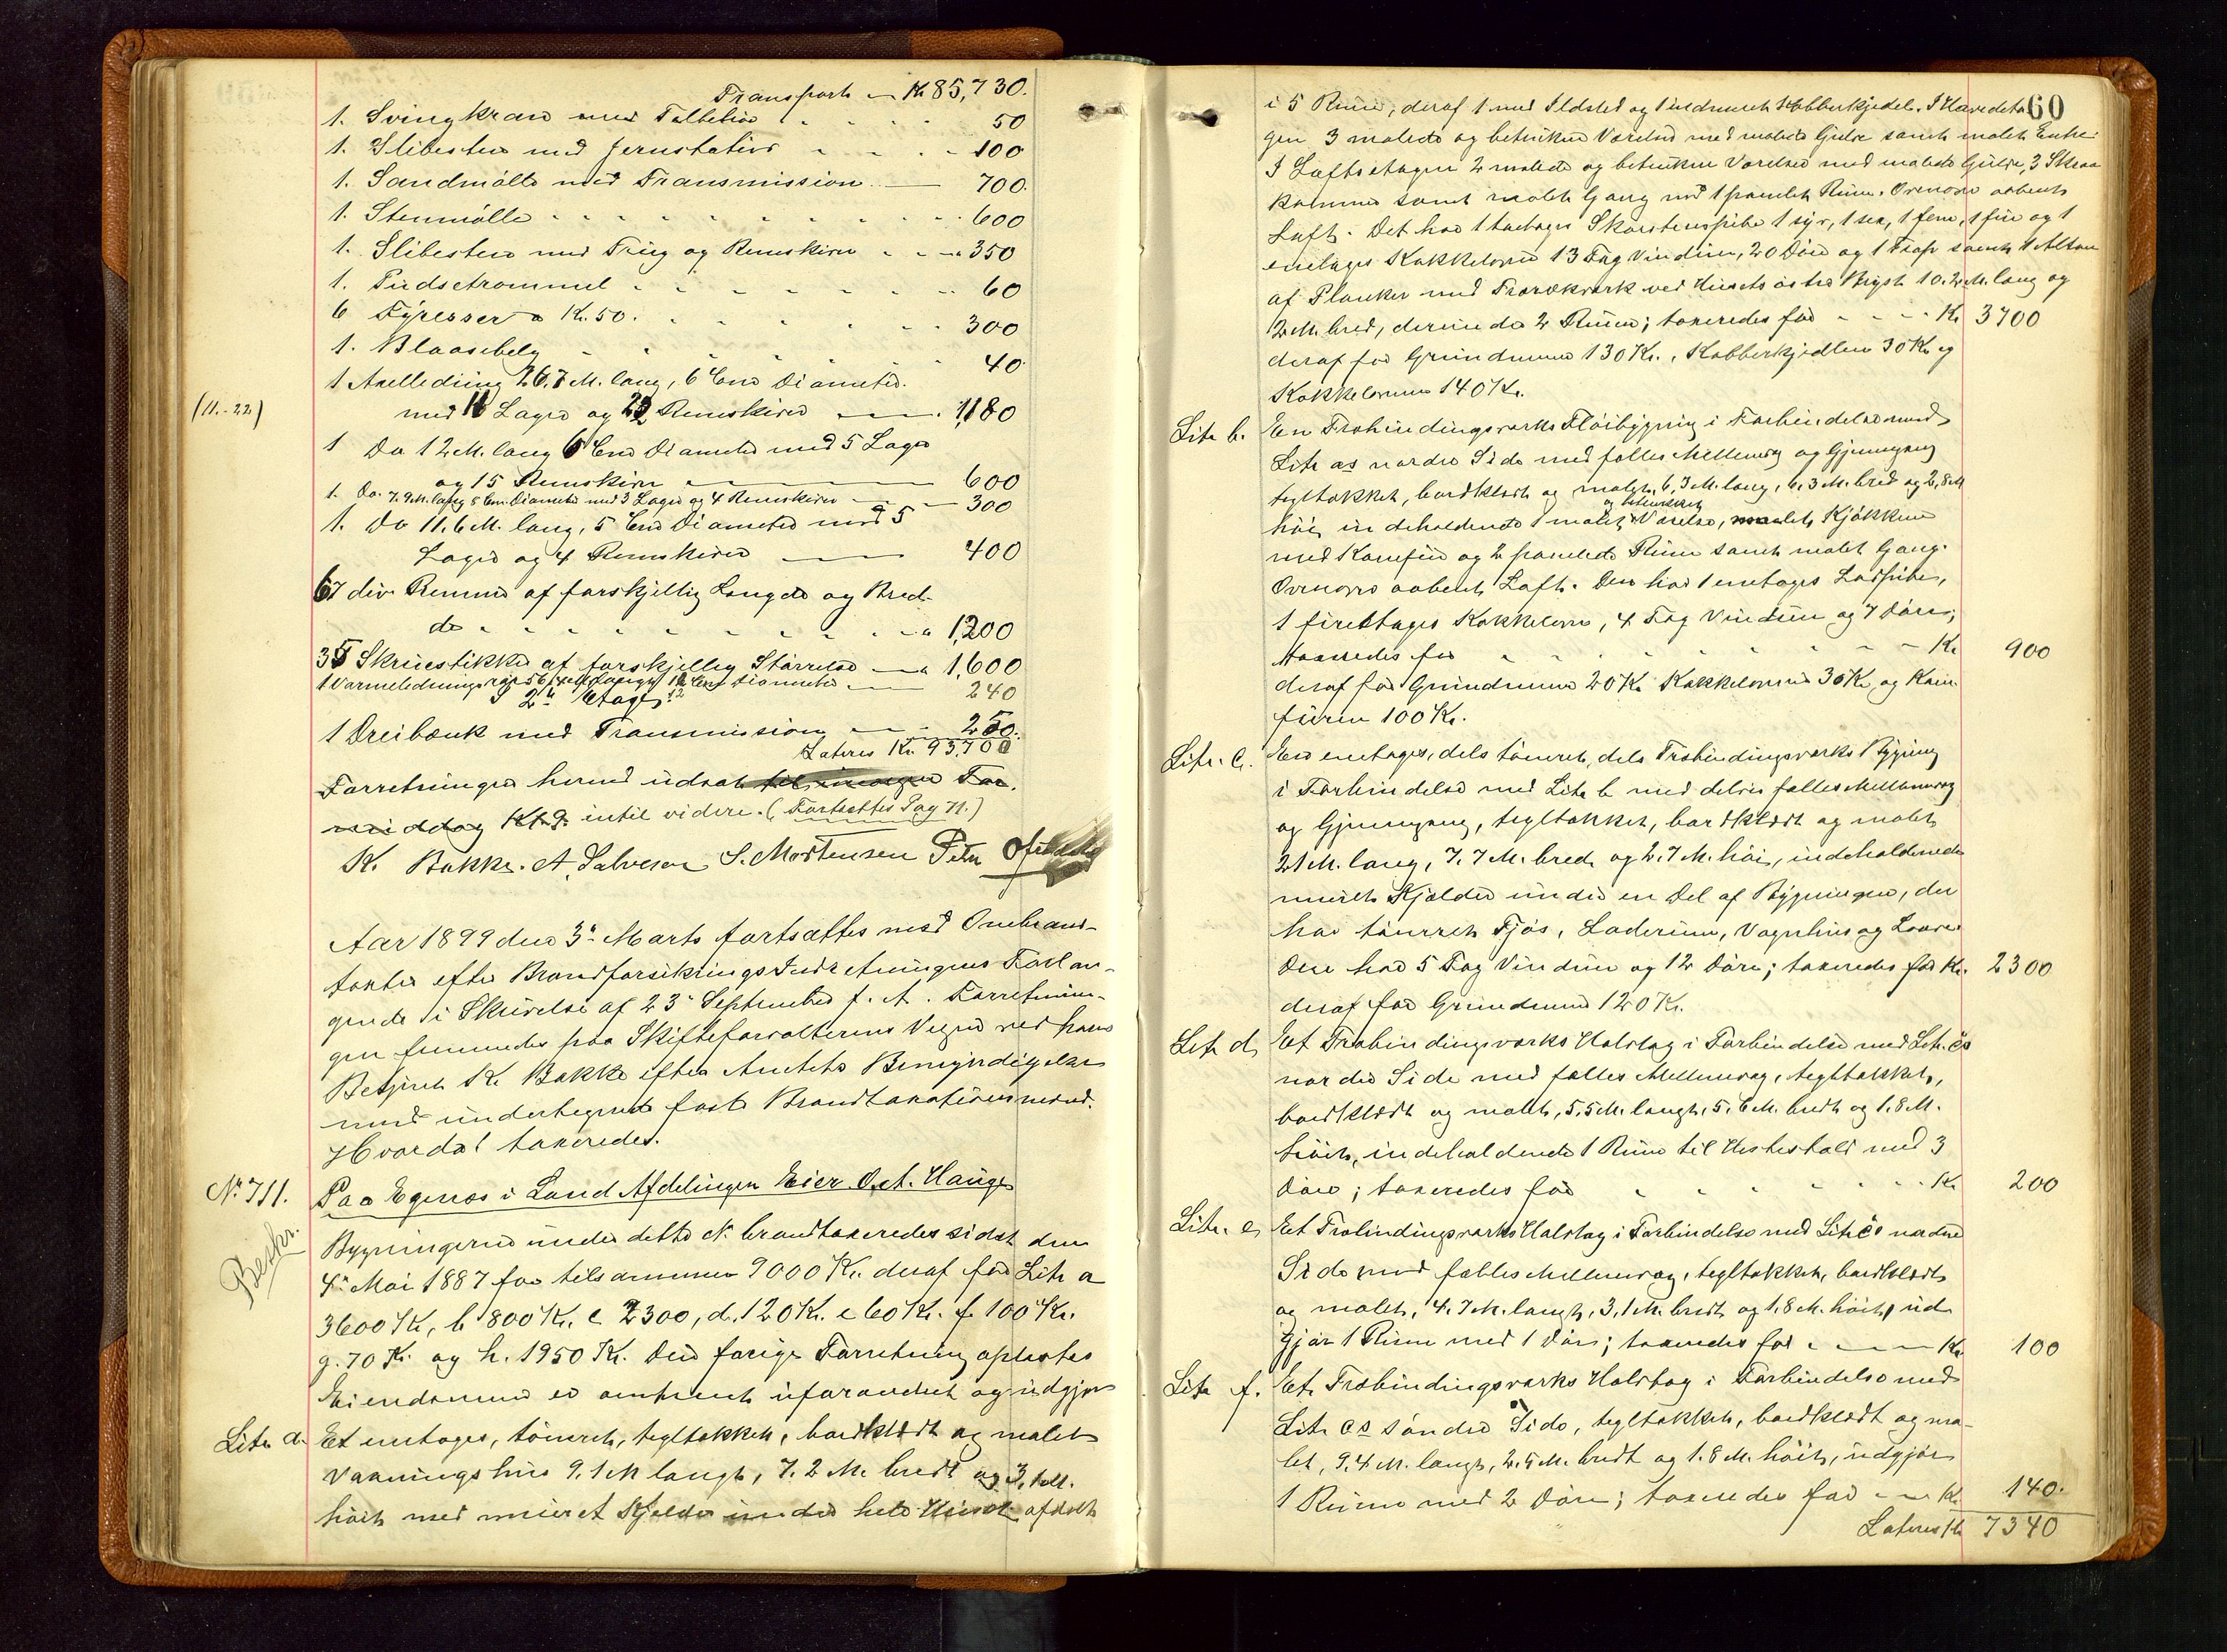 Transport — Kr 85,730.
1. Svingkran med Tilbehør - - - 50
1. Slibesten med Jernstativ - - - 100
1. Sandmølle med Transmission — 700.
1. Stenmølle - - - 600
1. Slibesten med Trug og Remskive - - - 350
1. Pudsetrommel - - - 60
6 Fyresser a Kr. 50. - - - 300
1. Blaasebelg - - - 40
1 Axelledning 26,7 M. lang, 6 Ctm Diameter
(11.-22)
med 11 Lager og 22 Remskiver — 1,180
1 Do 12 M. lang 6 Ctm Diameter med 5 Lager
og 15 Remskiver — 600
1. Do. 7.9 M. lang 5 Ctm. Diameter med 3 Lager og 4 Remskiver — 300
1. Do 11,6 M. lang, 5 Ctm Diameter med 5
Lager og 4 Remskiver — 400
67 div. Remme af forskjellig Længde og Bred-
de - - - " 1,200
35 Skruestikker af forskjellig Størrelse — " 1,600
1 Varmeledningsrør langt 12 Ctm Diameter — 240
I 2den Etage:
1 Dreibænk med Transmission — 250.
Lateres Kr. 93,700
Forretningen herved udsat til imorgen For-
middag Kl. 9. intil videre. (Fortsættes Pag 71.)
K. Bakke. A. Salveson S. Mortensen Peter
Aar 1899 den 3die Marts fortsattes med Ombrand-
taxter efter Brandforsikrings Indretningens Forlan-
gende i Skrivelse af 23de September f. A. Forretnin-
gen fremmedes paa Skifteforvalterens Vegne ved hans
Betjent K. Bakke efter Amtets Bemyndigelse
med undertegnede faste Brandtaxationsmænd.
Hvorda! taxeredes.
No. 711. Paa Egenæs i Land Afdelingen Eier Ost. Hauge
Beskr.
Bygningerne under dette No. brandtaxeredes sidst den
4de Mai 1887 for tilsammen 9000 Kr. deraf for Litr. a
3600 Kr., b 800 Kr. c 2300, d. 120 Kr. e 60 Kr. f. 100 Kr.
g. 70 Kr. og h. 1950 Kr. Den forige Forretning oplæstes
Eiendommen er omtrent uforandret og udgjør
Litr. a. Et enetages, tømret, tegltækket, bordklædt og malet
Vaaningshus 9.1 M langt, 7.2 M. bredt og 3,1 M.
høit med muret Kjelder under hele Huset afdelt
60
i 5 Rum, deraf 1 med Ildsted og 1 indmuret Kobberkjedel. I Hovedeta-
gen 3 malede og betrukne Værelser med malede Gulve samt malet Entre.
I Loftsetagen 2 malede og betrukne Værelser med malede Gulve, 3 Skraa
kammer samt malet Gang med 1 panelet Rum. Ovenover aabent
Loft. Det har 1 toetages Skorstenspibe 1 syv, 1 sex, 1 fem, 1 fire og 1
enetages Kakkelovn 13 Fag Vinduer, 20 Døre og 1 Trap samt 1 Altan
af Planker med Trærækværk ved Husets østre Bryst 10.2 M. lang og
2 M. bred, derunder 2 Rum; taxeredes for - - - Kr. 3700
deraf for Grundmuren 130 Kr., Kobberkjedlen 30 Kr og
Kakkelovnene 140 Kr.
Litr b. En Træbindingsværks Fløibygning i Forbindelse med
Litr as nordre Side med fælles Mellemvæg og Gjennemgang
tegltækket, bordklædt og malet, 6,3 M. lang, 6,3 M. bred og 2,8 M
og betrukket
høi, indeholdende 1 malet Værelse, malet Kjøkken
med Komfur og 2 panelede Rum samt malet Gang.
Ovenover aabent Loft. Den har 1 enetages Ladpibe,
1 fireetages Kakkelovn, 4 Fag Vinduer og 7 Døre;
taxeredes for - - - Kr. 900
deraf for Grundmuren 20 Kr. Kakkelovnen 30 Kr. og Kom-
furen 100 Kr.
Litr. c. En enetages, dels tømret, dels Træbindingsværks Bygning
i Forbindelse med Litr b med delvis fælles Mellemvæg
og Gjennemgang, tegltækket, bordklædt og malet
21 M. lang, 7,7 M. bred og 2.7 M. høi, indeholdende
muret Kjelder under en Del af Bygningen, der
har tømret Fjøs, Laderum, Vognhus og Laave.
Den har 5 Fag Vinduer og 12 Døre; taxeredes for Kr. 2300
deraf for Grundmuren 120 Kr.
Litr d. Et Træbindingsværks Halvtag i Forbindelse med Litr. c's
nordre Side med fælles Mellemvæg, tegltækket,
bordklædt og malet, 5.5 M. langt, 5.6 M. bredt og 1.8 M.
høit, indeholdende 1 Rum til Hestestald med 3
Døre; taxeredes for - - - Kr. 200
Litr. e. Et Træbindingsværks Halvtag i Forbindelse med Litr c's nordre
Side med fælles Mellemvæg, tegltækket, bordklædt
og malet, 4.7 M. langt, 3,1 M. bredt og 1.8 M. høit, ud
gjør 1 Rum med 1 Dør; taxeredes for - - - Kr. 100
Litr f. Et Træbindingsværks Halvtag i Forbindelse med
Litr cs søndre Side, tegltækket, bordklædt og ma-
let, 9.4 M. langt, 2.5 M. bredt og 1.8 M. høit, udgjør
1 Rum med 2 Døre; taxeredes for — Kr. 140.
Lateres Kr 7340